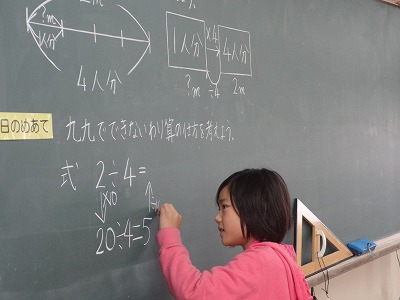 ?m
1人分
4人分
1人分 ×4 4人分
?m ÷4 2m
日のめあて
九九でできないわり算の仕方を考えよう。
式 2÷4=
×10
20÷4=5